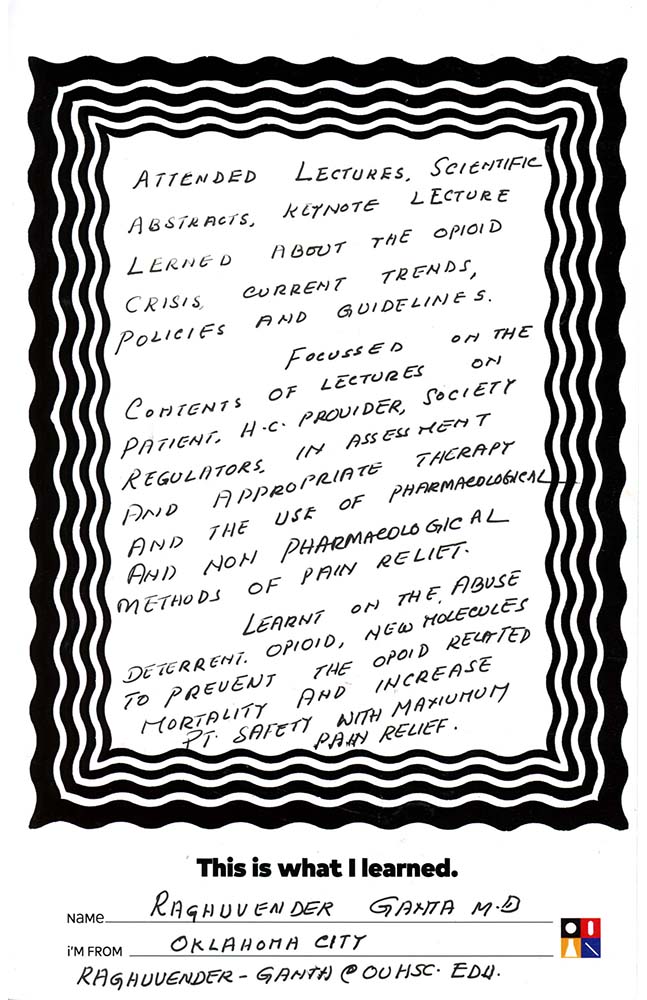 ATTENDED LECTURES, SCIENTIFIC
ABSTRACTS, KEYNOTE LECTURE
LERNED ABOUT THE OPIOID
CRISIS, CURRENT TRENDS,
POLICIES AND GUIDELINES.
FOCUSSED ON THE
CONTENTS OF LECTURES ON
PATIENT, H.C. PROVIDER, SOCIETY
REGULATORS, IN ASSESSMENT
AND APPROPRIATE THERAPY
AND THE USE OF PHARMACOLOGICAL
AND NON PHARMACOLOGICAL
METHODS OF PAIN RELIEF.
LEARNT ON THE ABUSE
DETERRENT. OPIOID, NEW MOLECULES
TO PREVENT THE OPOID RELATED
MORTALITY AND INCREASE
PT. SAFETY WITH MAXIUMUM
PAIN RELIEF.
This is what I learned.
Name RAGHUVENDER GANTA M.D
i'M FROM OKLAHOMA CITY
RAGHUVENDER-GANTA@OUHSC.EDU.